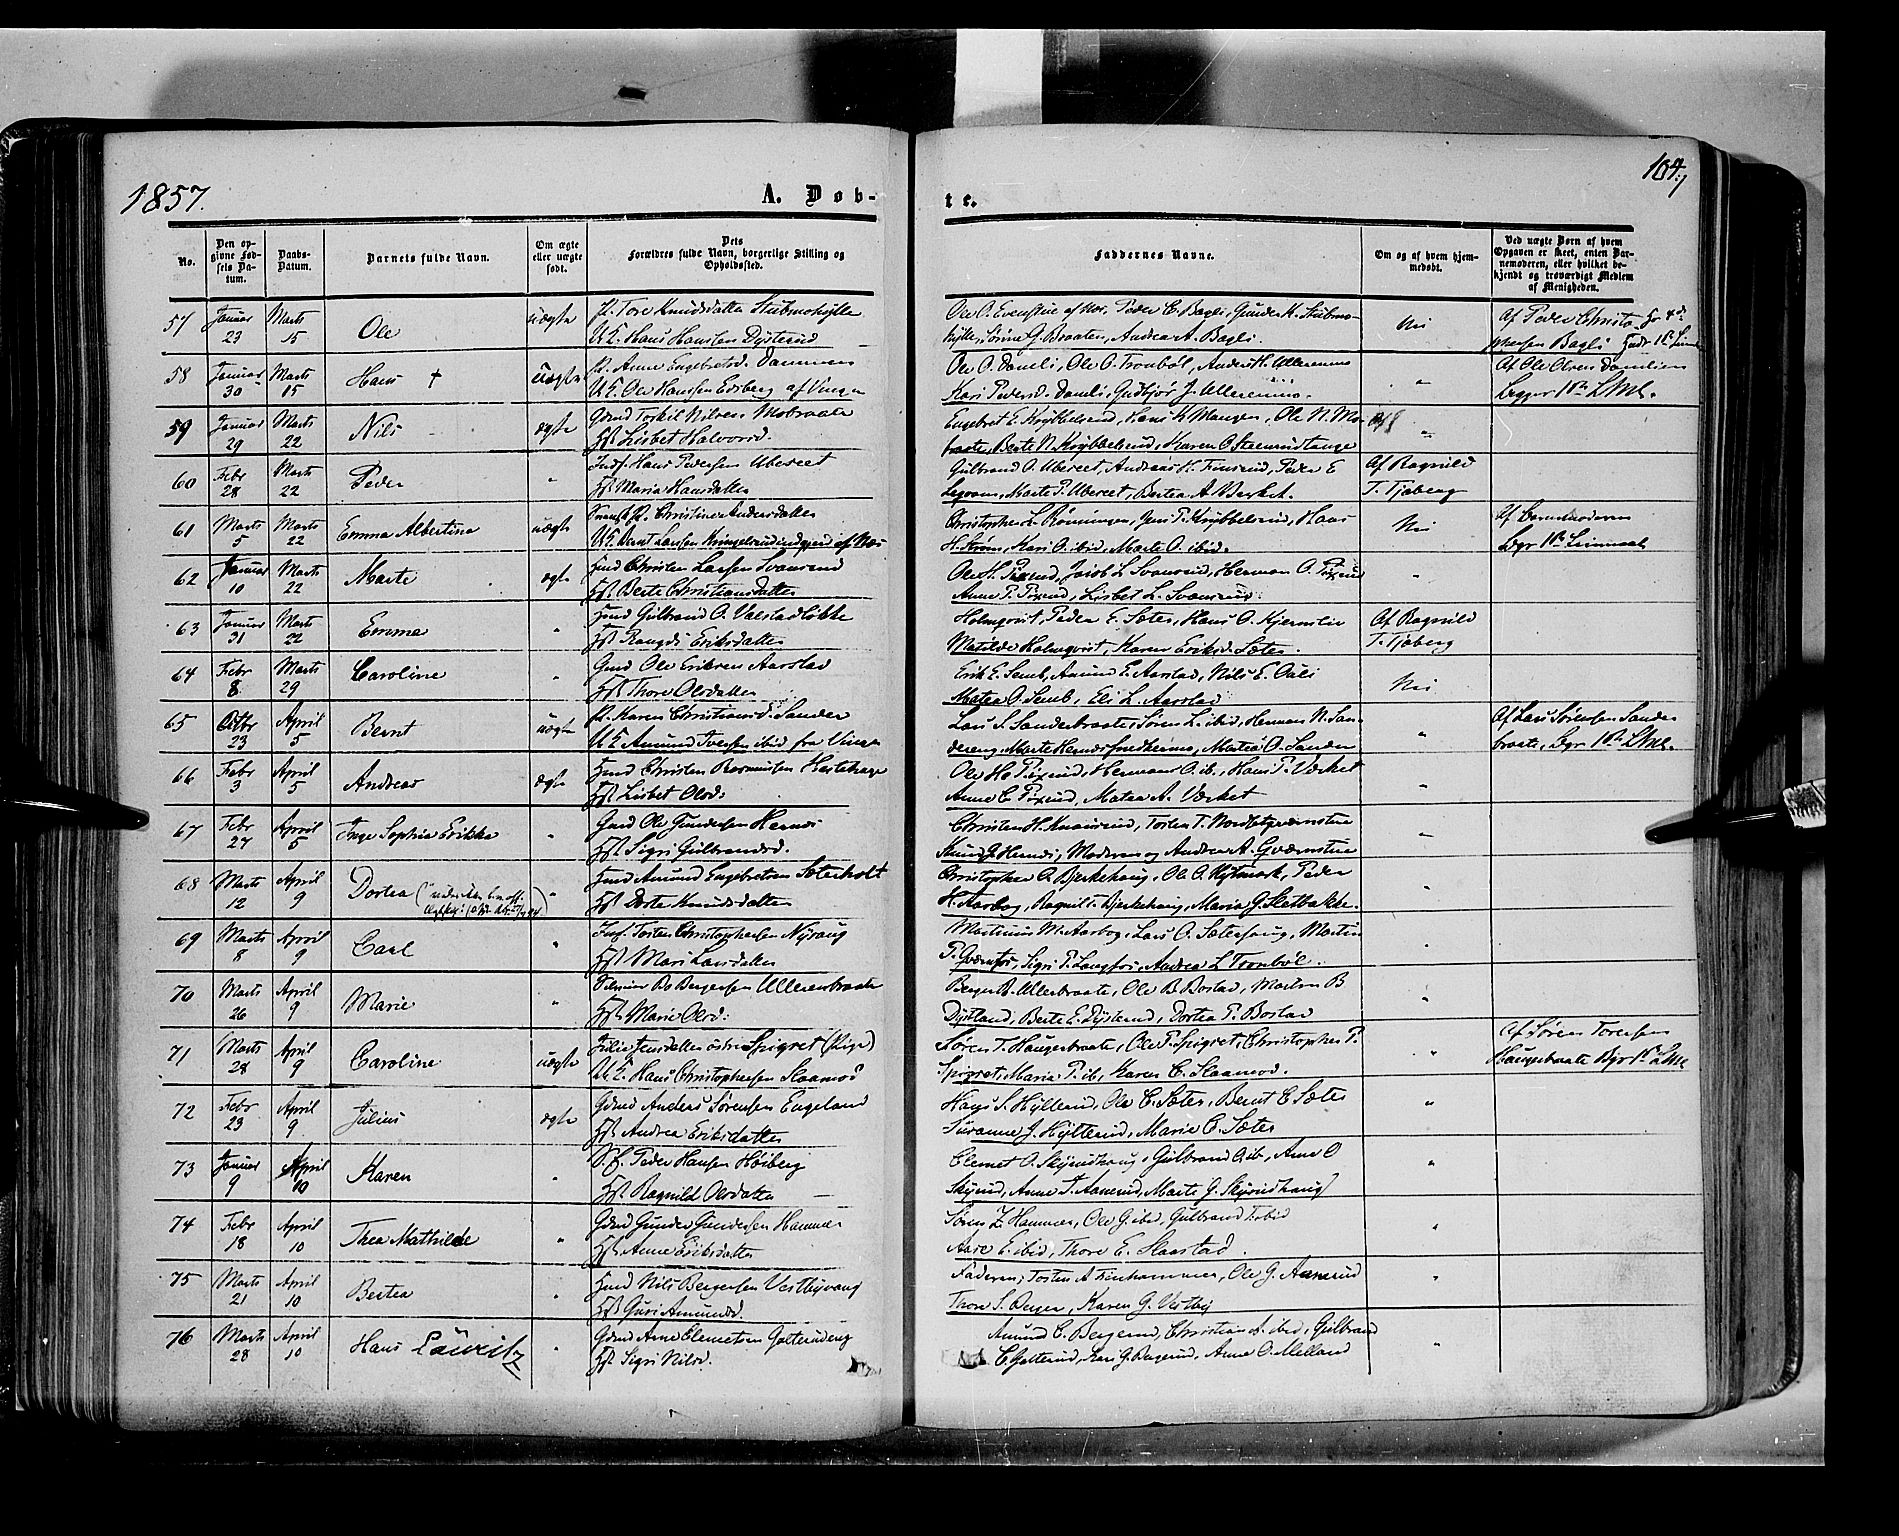 1857.
A. Døb-
te.
104
No.
Den opgivne Fødsels Datum.
Daabs-Datum.
Barnets fulde Navn.
Om ægte eller uægte født.
Dets Forældres fulde Navn, borgerlige Stilling og Opholdssted.
Faddernes Navne.
Om og af hvem hjemmedøbt.
Ved uægte Børn af hvem Opgaven er skeet, enten Barnemoderen, eller hvilket bekjendt og troværdigt Medlem af Menigheden.
57 Januar 23 Marts 15 Ole uægte P. Tore Knudsdatter
U.F. Hans Hansen Dysterud
Ole O. Peder C. Bagli, Gunder K.
Sønne G. Braaten, Andrea A. Bagli.
Nei
Af Peder Christo-
phersen Bagli
58 Januar 30 Marts 15 Hans † uægte P. Anne Engebretsd. Dammen
U.F. Ole Hansen Edsberg af Vinger
Ole O. Damli, Ole O. Trønbøl, Anders H. Ullerenmo
Kari Pedersd. Damli, J. Ullerenmo.
"
Af Ole Olsen Damlien
59 Januar 29 Marts 22 Nils ægte Gdmd Torkil Nilsen Mobraate
Hst Lisbet Halvorsd.
Engebret E. Krybbelsrud, Hans K. Mangen, Ole N. Mo-
braate, Berte N. Krybbelsrud, Karen O.
"
60 Febr 28 Marts 22 Peder " Inds. Hans Pedersen Ubereet
Hst Maria Hansdatter
Gulbrand O. Ubereet, Andreas H. Finsrud, Peder E.
Marte P. Ubereet, Bertea A. Berket.
Af Ragnild
T. Tjøberg
61 Marts 5 Marts 22 Emma Albertina uægte P. Christine Andersdatter
U.F. Bernt Larsen
Christopher L. Rønningen, Jens P. Krybbelsrud, Hans
H. Strøm, Kari O. ibid, Marte O. ibid.
Nei
Af Barnemoderen
62 Januar 10 Marts 22 Marte ægte Hmd Christen Larsen Svansrud
Hst Berte Christiansdatter
Ole H. Pixrud, Jacob L. Svansrud, Herman O. Pixrud
Anne P. Pixrud, Lisbet L. Svansrud.
"
63 Januar 31 Marts 22 Emma " Hmd Gulbrand O. Valstadløkke
Hst Rangdi Eriksdatter
Holmqvist, Peder E. Sæter, Hans O. Kjernslie
Matilde Holmqvist, Karen Eriksd. Sæter.
Af Ragnild
T. Tjøberg
64 Febr 8 Marts 29 Caroline " Gmd Ole Eriksen Aarstad
Hst Thore Olsdatter
Erik E. Semb, Amund E. Aarstad, Nils E. Opli
Matea O. Semb, Eli L. Aarstad
Nei
65 Octbr 23 April 5 Bernt uægte P. Karen Christiansd. Sander
U.F. Amund Iversen ibid fra Vinger
Lars S. Sanderbraate, Søren L. ibid, Herman N. San-
dereng, Marte O. Sander
"
Af Lars Sørensen Sander-
braate,
66 Febr 3 April 5 Andreas ægte Hmd Christen Rasmussen Hestehage
Hst Lisbet Olsd:
Ole H. Pixrud, Herman O. ib, Hans P. Værket
Anne C. Pixrud, Matea A. Værket
"
67 Febr 27 April 5 Inge Sophie Erikke " Gmd Ole Gundersen Hernæs
Hst Sigri Gulbrandsd.
Christen H. Knaisrud, Torsten T.
G. Hernæs, Moderen og Andrea A.
"
68 Marts 12 April 9 Dortea " Hmd Amund Engebretsen Sæterholt
Hst Dorte Knudsdatter
Christopher O. Bjerkehaug, Ole O. Peder
H. Aarbog, Ragnil T. Bjerkehaug, Maria G. Sletbakke.
"
69 Marts 8 April 9 Carl " Inds. Torsten Christophersen Nysaug
Hst Mari Larsdatter
Martinius M. Aarbog, Lars O. Sæterhaug, Martin
P. Sigri P. Langfos, Andrea L. Trønbøl.
"
70 Marts 26 April 9 Marie " Bo Bergersen Ullerenbraate
Hst Marie Olsd:
Berger B. Ullerbraate, Ole B. Bostad, Morten B.
Dystland, Berte E. Dysterud, Dortea P. Bostad
"
71 Marts 28 April 9 Caroline uægte Julie Jensdatter østre Spigset (Pige)
U.F. Hans Christophersen Slaamod
Søren T. Haugerbraate, Ole P. Spigset, Christopher P.
Spigset, Maria P. ib, Karen C. Slaamod.
"
Af Søren Toresen
Haugerbraate
72 Febr 23 April 9 Julius ægte Gdmd Anders Sørensen Engeland
Hst Andrea Eriksdatter
Hans S. Hylterud, Ole C. Sæter, Bernt C. Sæter
Susanne J. Hylterud, Marie C. Sæter
"
73 Januar 9 April 10 Karen " S.f. Peder Hansen Høiberg
Hst Ragnild Olsdatter
Clemet O. Skyrudhaug, Gulbrand O. ib, Arne O
Skyrud, Anne T. Aamrud, Marte G. Skyrudhaug
"
74 Febr 18 April 10 Thea Mathilde " Gdmd Gunder Gundersen Hammer
Hst Anne Eriksdatter
Søren Z. Hammer, Ole G. ibid, Gulbrand T. ibid
Aase E. ibid, Thore E. Slaastad.
"
75 Marts 21 April 10 Bertea " Hmd Nils Bergersen Vestbyvang
Hst Guri Amundsd.
Faderen, Torsten A. Finhammer, Ole G. Aamrud
Thore S. Berger, Karen G. Vestby
"
76 Marts 28 April 10 Hans Lauritz " Gdmd Arne Clemetsen Galterudeng
Hst Sigri Nilsd.
Amund C. Bergerud, Christian A. ibid, Gulbrand
C. Galterud, Kari G. Bergerud, Anne O. Melland
"